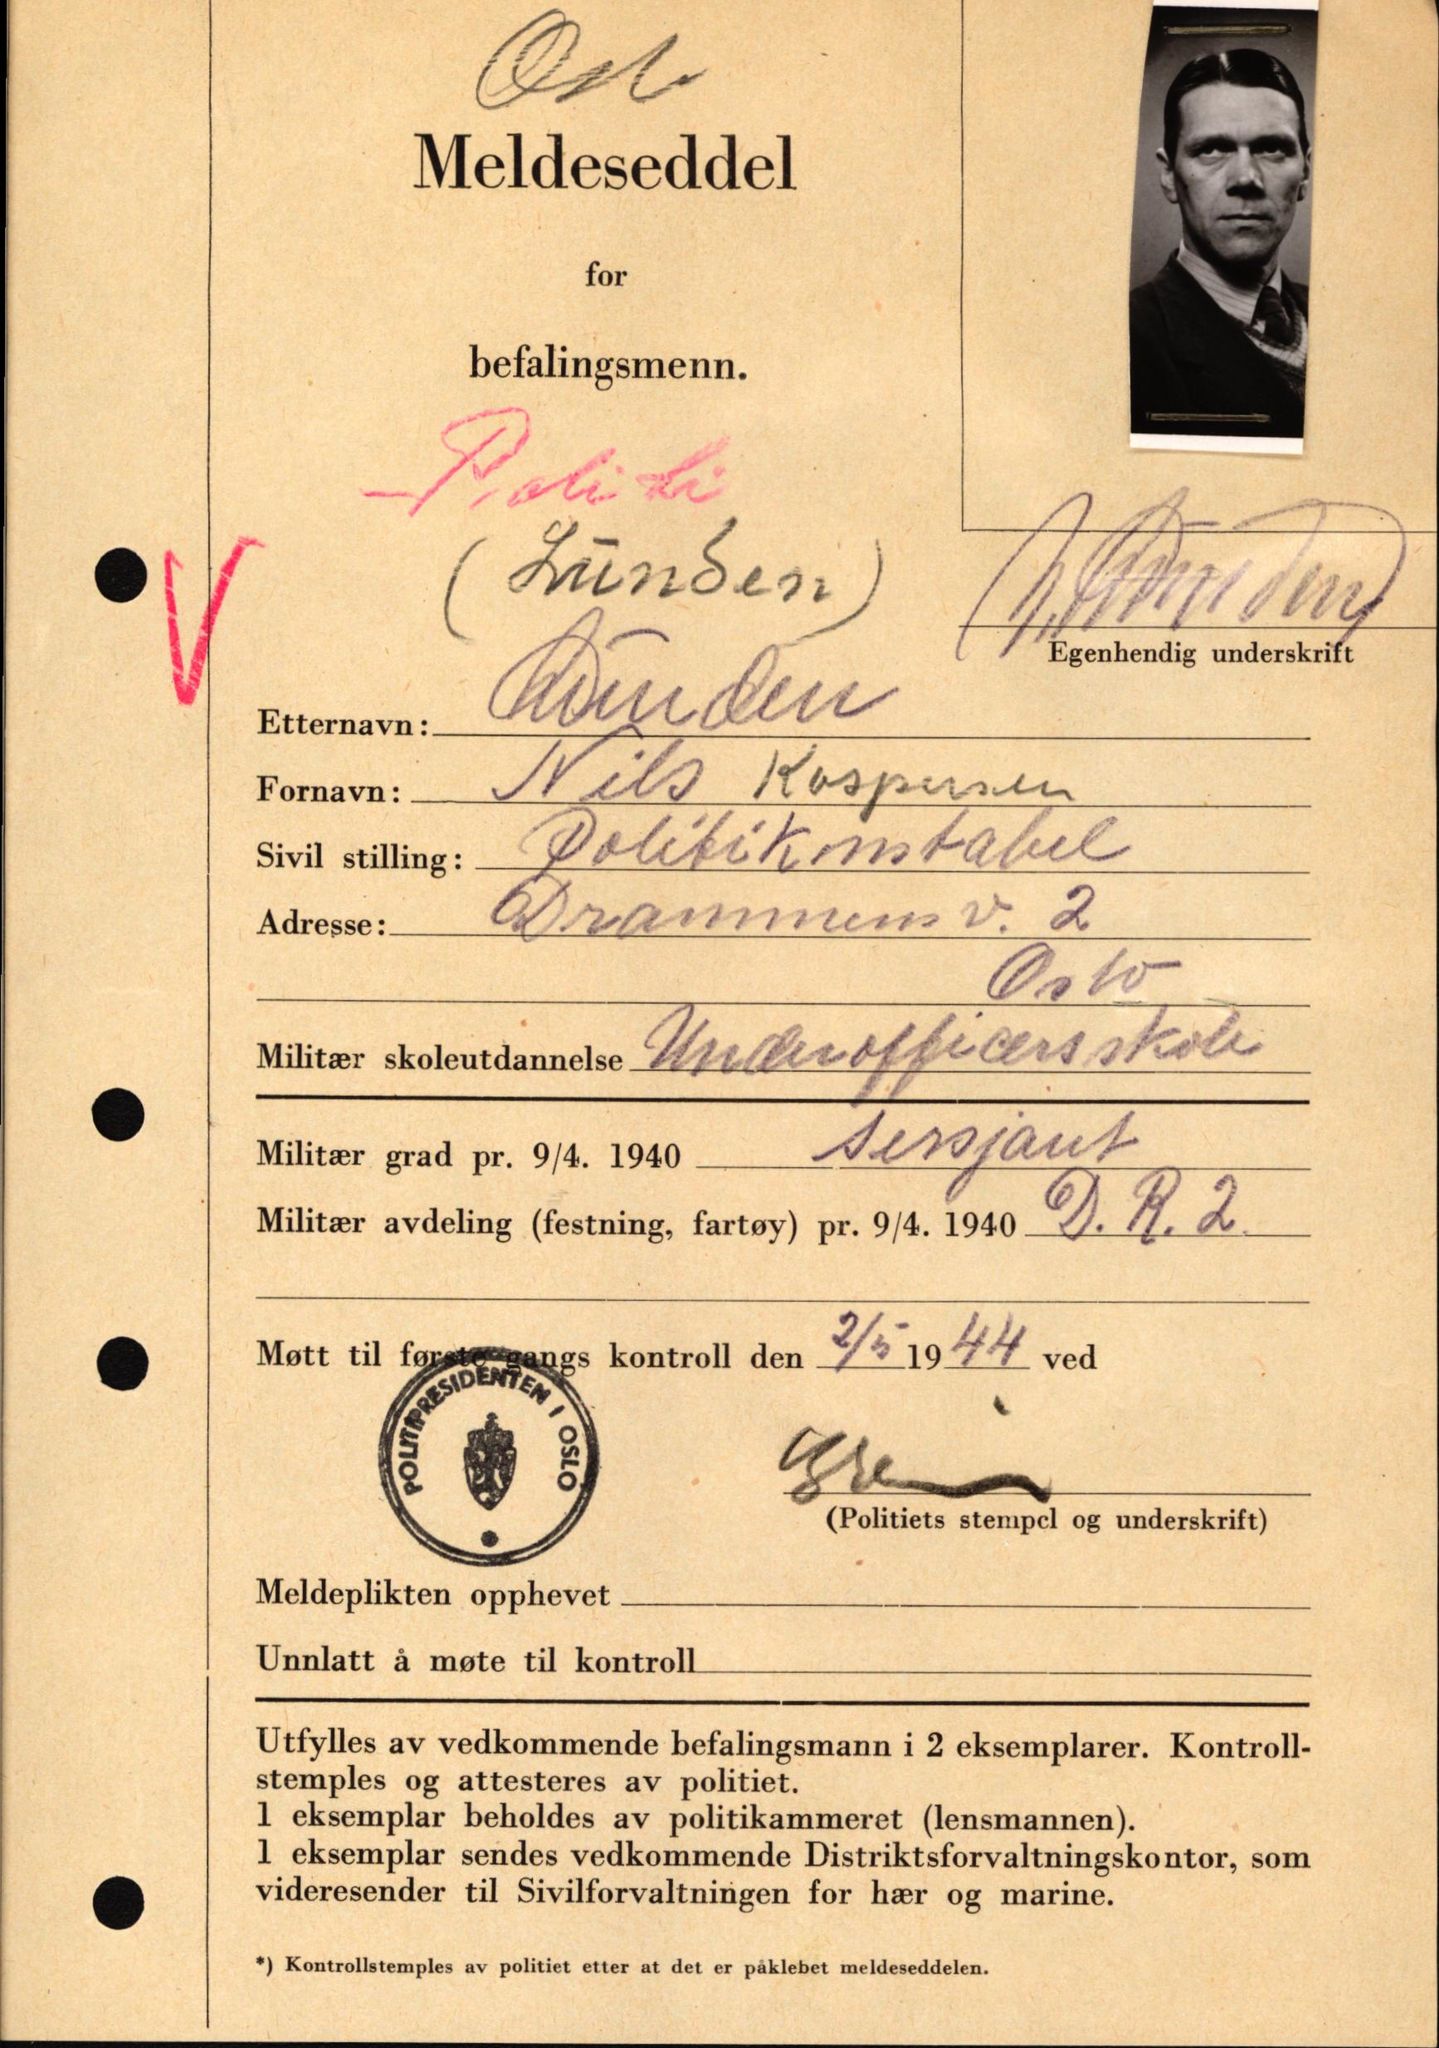 Osl
Meldeseddel
for
befalingsmenn.
Politi
(Lünden)
Egenhendig underskrift
Etternavn: Lünden
Fornavn: Nils Kaspersen
Sivil stilling: Politikonstabel
Adresse: Drammens v. 2
Oslo
Militær skoleutdannelse Underofficersskole
Militær grad pr. 9/4. 1940 sersjant
Militær avdeling (festning, fartøy) pr. 9/4. 1940 D. R. 2.
Møtt til første gangs kontroll den 2/5 1944 ved
POLITIPRESIDENTEN I OSLO
(Politiets stempel og underskrift)
Meldeplikten opphevet
Unnlatt å møte til kontroll
Utfylles av vedkommende befalingsmann i 2 eksemplarer. Kontroll-
stemples og attesteres av politiet.
1 eksemplar beholdes av politikammeret (lensmannen).
1 eksemplar sendes vedkommende Distriktsforvaltningskontor, som
videresender til Sivilforvaltningen for hær og marine.
*) Kontrollstemples av politiet etter at det er påklebet meldeseddelen.